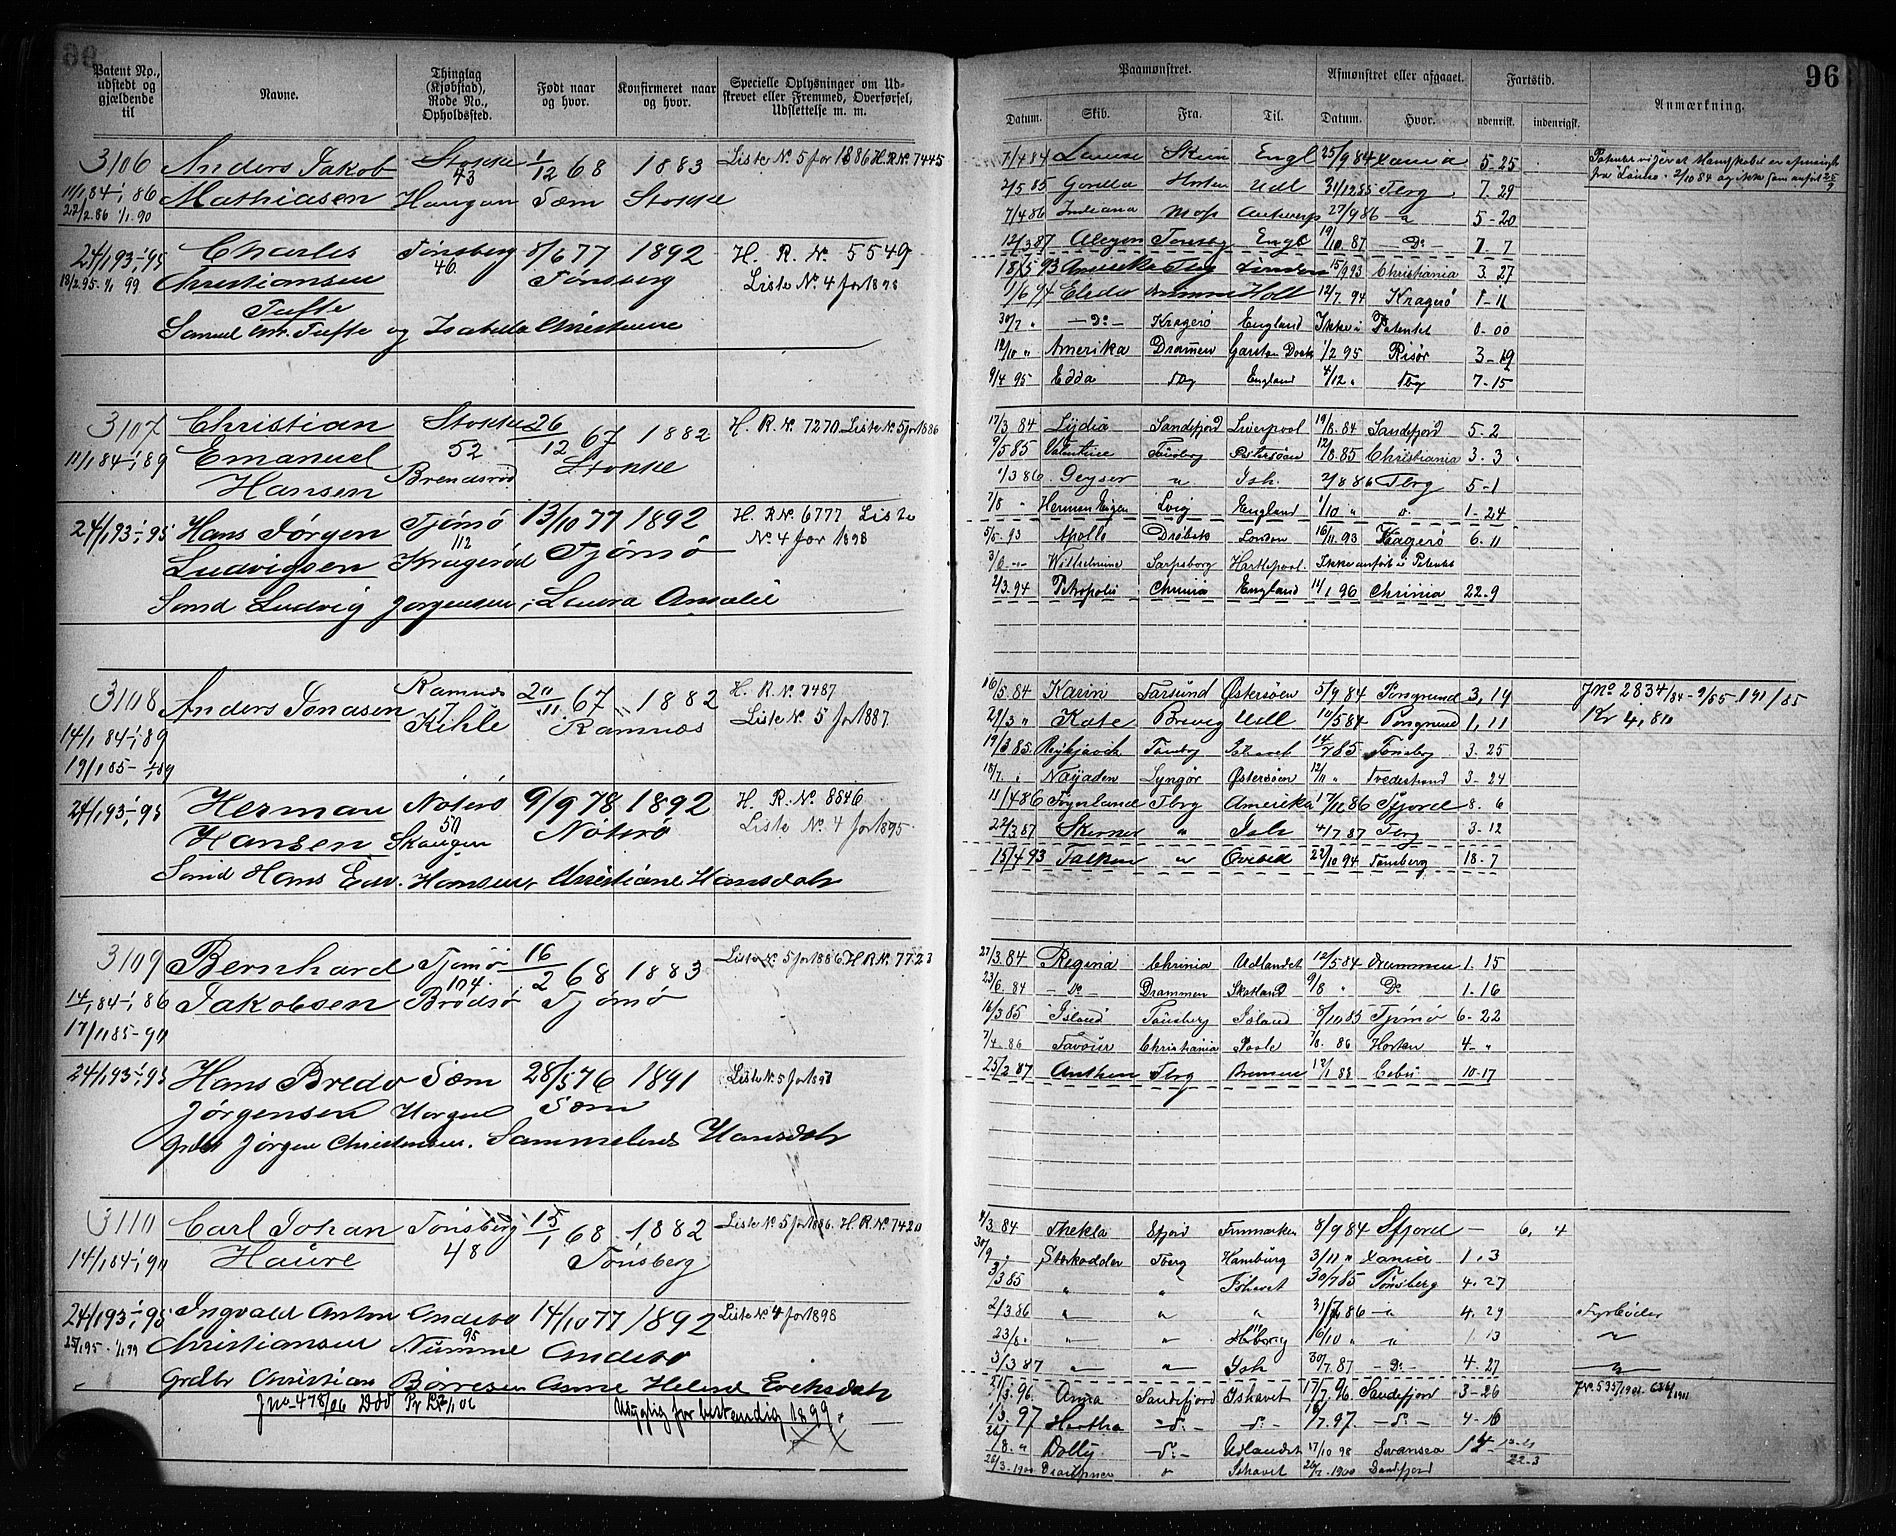 96
Patent No., udstedt og gjældende til
Navne.
Thinglag (Kjøbstad), Rode No., Opholdssted.
Født naar og hvor.
Konfirmeret naar og hvor.
Specielle Oplysninger om Udskrevet eller Fremmed, Overførsel, Udslettelse m. m.
3106 Anders Jakob Stokke 1/12 68 1883 Liste No. 5 for 1886 H.R.No. 7445
43
11/1 84-1/1 86 Mathiasen Haugan Sem Stokke
22/2.86 1/1.90
24/1 93-1/1 95 Charles Tønsberg 8/6 77 1892 H. R. No 5549
46.
18/2.95-1/1 99 Christiansen Tønsberg Liste No. 4 for 1898
Tufte
Samuel Chr. Tufte og Isabella Christiane
3107 Christian Stokke 26/12 67 1882 H. R. No. 7270 Liste No. 5 for 1886
11/1 84-1/1 89 Emanuel 52 Stokke
Hansen Brendsrød
24/1 93-1/1 95 Hans Jørgen Tjømø 13/10 77 1892 H. R.No. 6777 Liste
112 No. 4 for 1898
Ludvigsen Kruegerød Tjømø
Sønd Ludvig Jørgensen, Laura Amalie
3108 Anders Jonasen Ramnæs 20/11 67 1882 H. R. No. 7487
7
14/1 84-1/1 89 Kihle Ramnæs Liste No. 5 for 1887
19/1 85-1/1 89
24/1 93-1/1 95 Herman Nøterø 9/9 78 1892 H. R. No. 8546
50
Hansen Skaugen Nøterø Liste No. 4 for 1895
Sønd Hans Edv. Hansen, Christiane Hansdatr
3109 Bernhard Tjømø 16/2 68 1883 Liste No. 5 for 1886 H.R.No. 7723
104
14/1 84-1/1 86 Jakobsen Brødsø Tjømø
17/1 85-90
24/1 93-1/1 95 Hans Bredo Sem 28/5 76 1891 Liste No. 5 for 1898
Jørgensen Horgen Sem
Jørgen Christensen. Hansdatr
3110 Carl Johan Tønsberg 15/1 68 1882 Liste No. 5 for 1886. H. R. No. 7420
14/1 84-1/1 90 Haure 48 Tønsberg
24/1 93-1/1 95 Ingvald Anton Andebo 14/10 77 1892 Liste No. 4 for 1898
95
Christiansen Numme Andebo
Christian Børresen Anne Helene Eriksdatr
Jno 478/06 Død
Udygtig for bestandig 1899
Paamønstret.
Afmønstret eller afgaaet.
Fartstid.
Anmærkning.
96
Datum. Skib. Fra. Til. Datum. Hvor. udenrigsk. indenrigsk.
7/4 84 Louise Skien Engl 25/9 84 Xania 5-25
2/5 85 Gorilla Horten Udl 31/12 85 Tbrg 7.29
7/4 86 Indiana Moss Antwerp 27/9 86 " 5-20
12/3 87 Tønsbg Engl 19/10 87 -Do- 7. 7
18/5 93 Amerika Tbrg London 15/9 93 Christiania 3. 27
1/6 94 Holl 12/7 94 Kragerø 1-11
30/7 " -Do- Kragerø England Ikke i Patentet 0-00
12/10 " Amerika Drammen Garston Dock 1/2 95 Risør 3-19
9/4 95 Edda Tbg England 4/12 " Tbg 7-15
17/3 84 Lydia Sandefjord Liverpool 19/8 84 Sandefjord 5-2
9/5 85 Valentine Tønsberg Østersøen 12/8 85 Christiania 3. 3
1/3 86 Geyser " Ish. 2/8 86 Tbrg 5-1
7/8 " Herman Lvig England 1/10 " " 1-24
5/5 93 Apollo Drøbak London 16/11 93 Kragerø 6-11
3/6 Wilhelmine Sarpsborg Hartlepool. Ikke anført i Patentet
2/3 94 Petropolis Chrinia England 14/1 96 Chrinia 22-9
16/5 84 Karin Farsund Østersøen 5/9 84 Porsgrund 3, 19 Jno 2834/84 - 9/85 191/85
29/3 " Kate Brevig Udl 10/5 84 Porsgrund 1, 11 Kr 4,80
19/3 85 Reykjavik Tønsbg Ishavet 14/7 85 Tønsberg 3-25
18/7 " Najaden Lyngør Østersøen 12/11 " Tvedestrand 3-24
11/4 86 Tbrg Amerika 17/11 86 Sfjord 8. 6
22/3 87 Skirner " Ish 4/7 87 Tbrg 3-12
15/4 93 Falken " 22/10 94 Tønsberg 18-7
27/3 84 Regina Chrinia Udlandet 12/5 84 Drammen 1. 15
23/6 84 -Do- Drammen Skotland 9/8 " Do 1-16
16/3 85 Island Tønsberg Island 8/10 85 Tjømø 6-22
7/4 86 Favour Christiania Poole 7/8 86 Horten 4- "
25/2 87 Tbrg Bremen 12/1 88 Cebu 10-17
9/3 84 Thekla Sfjord Finmarken 8/9 84 Sfjord - 6. 4
30/9 " Størkodder Tbrg Hamburg 3/11 " Xania 1. 3
3/3 85 " " Ishavet 30/7 85 Tønsberg 4. 27
2/3 86 " " " 31/7 86 " 4. 29 Fyrbøder
23/8 " " " 16/10 " " 1. 13 "
3/3 87 " " Ish 30/7 87 -Do- 4-27 "
21/3 96 Anna Sandefjord Ishavet 17/7 96 Sandefjord 3-26
1/3 97 Hertha -d.- -d.- 16/7 97 -d.- 4-16
1/8 " Dolly -d.- Udlandet 17/10 98 Swansea 14
22-3
26/3-1900 " Ishavet 26/7-1900 Sandefjord